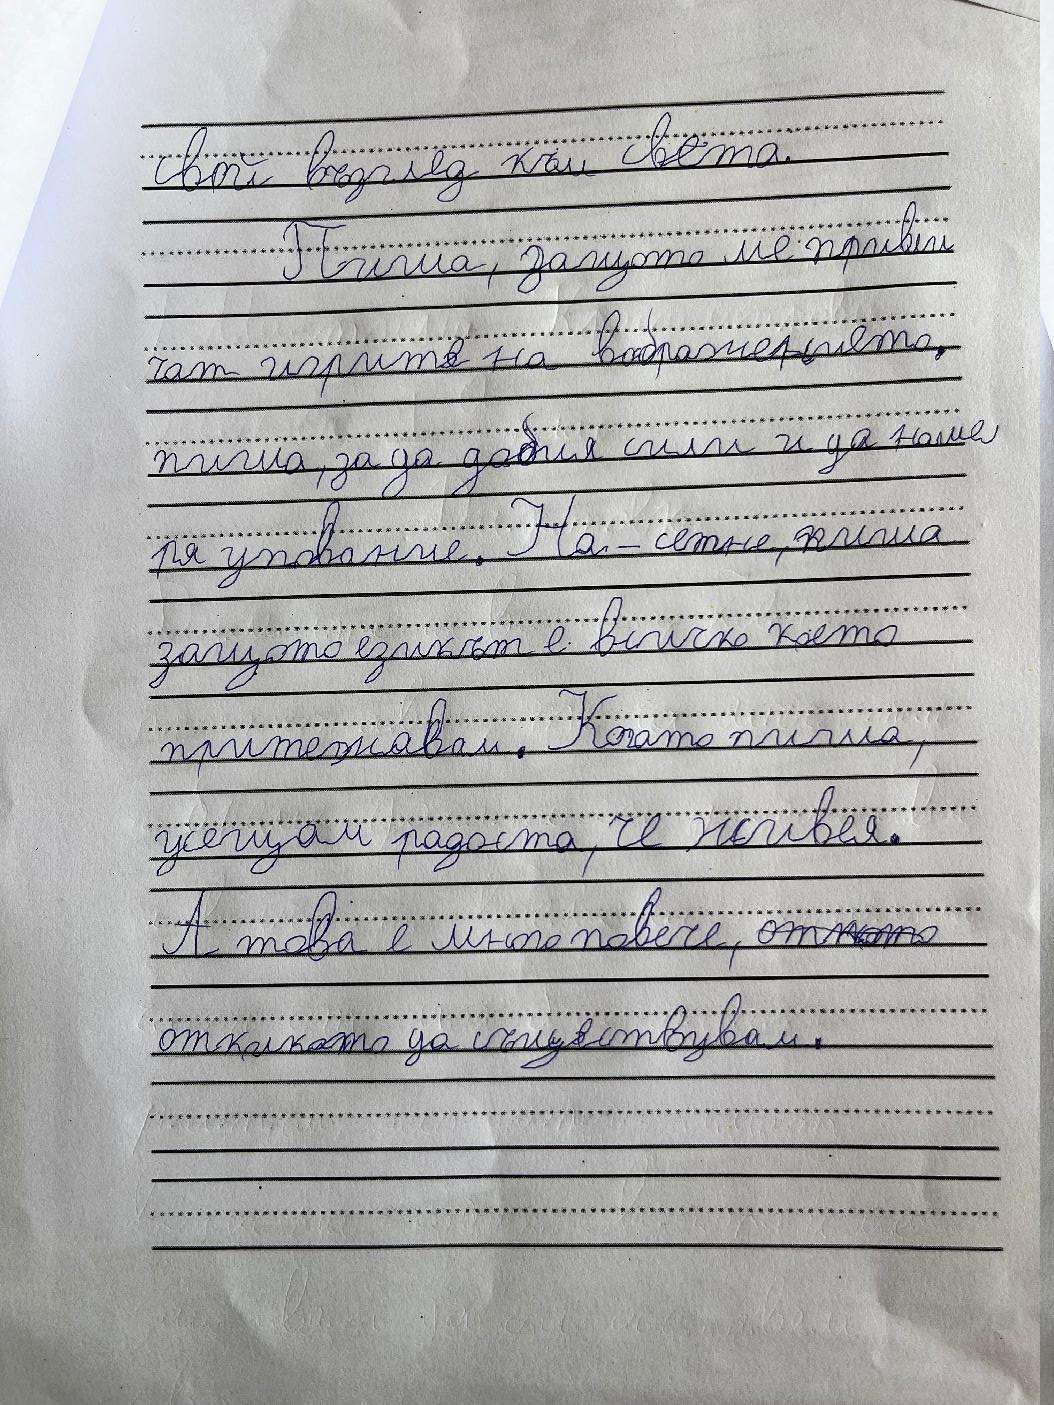 свой възглед към света.
Пиша, защото ме привли
чат игрите на въображението,
пиша, за да добия сили и да наме
ря упование. На-сетне, пиша
защото езикът е всичко което
притежавам. Когато пиша,
усещам радоста, че живея.
А това е много повече,
отколкото да съществувам.